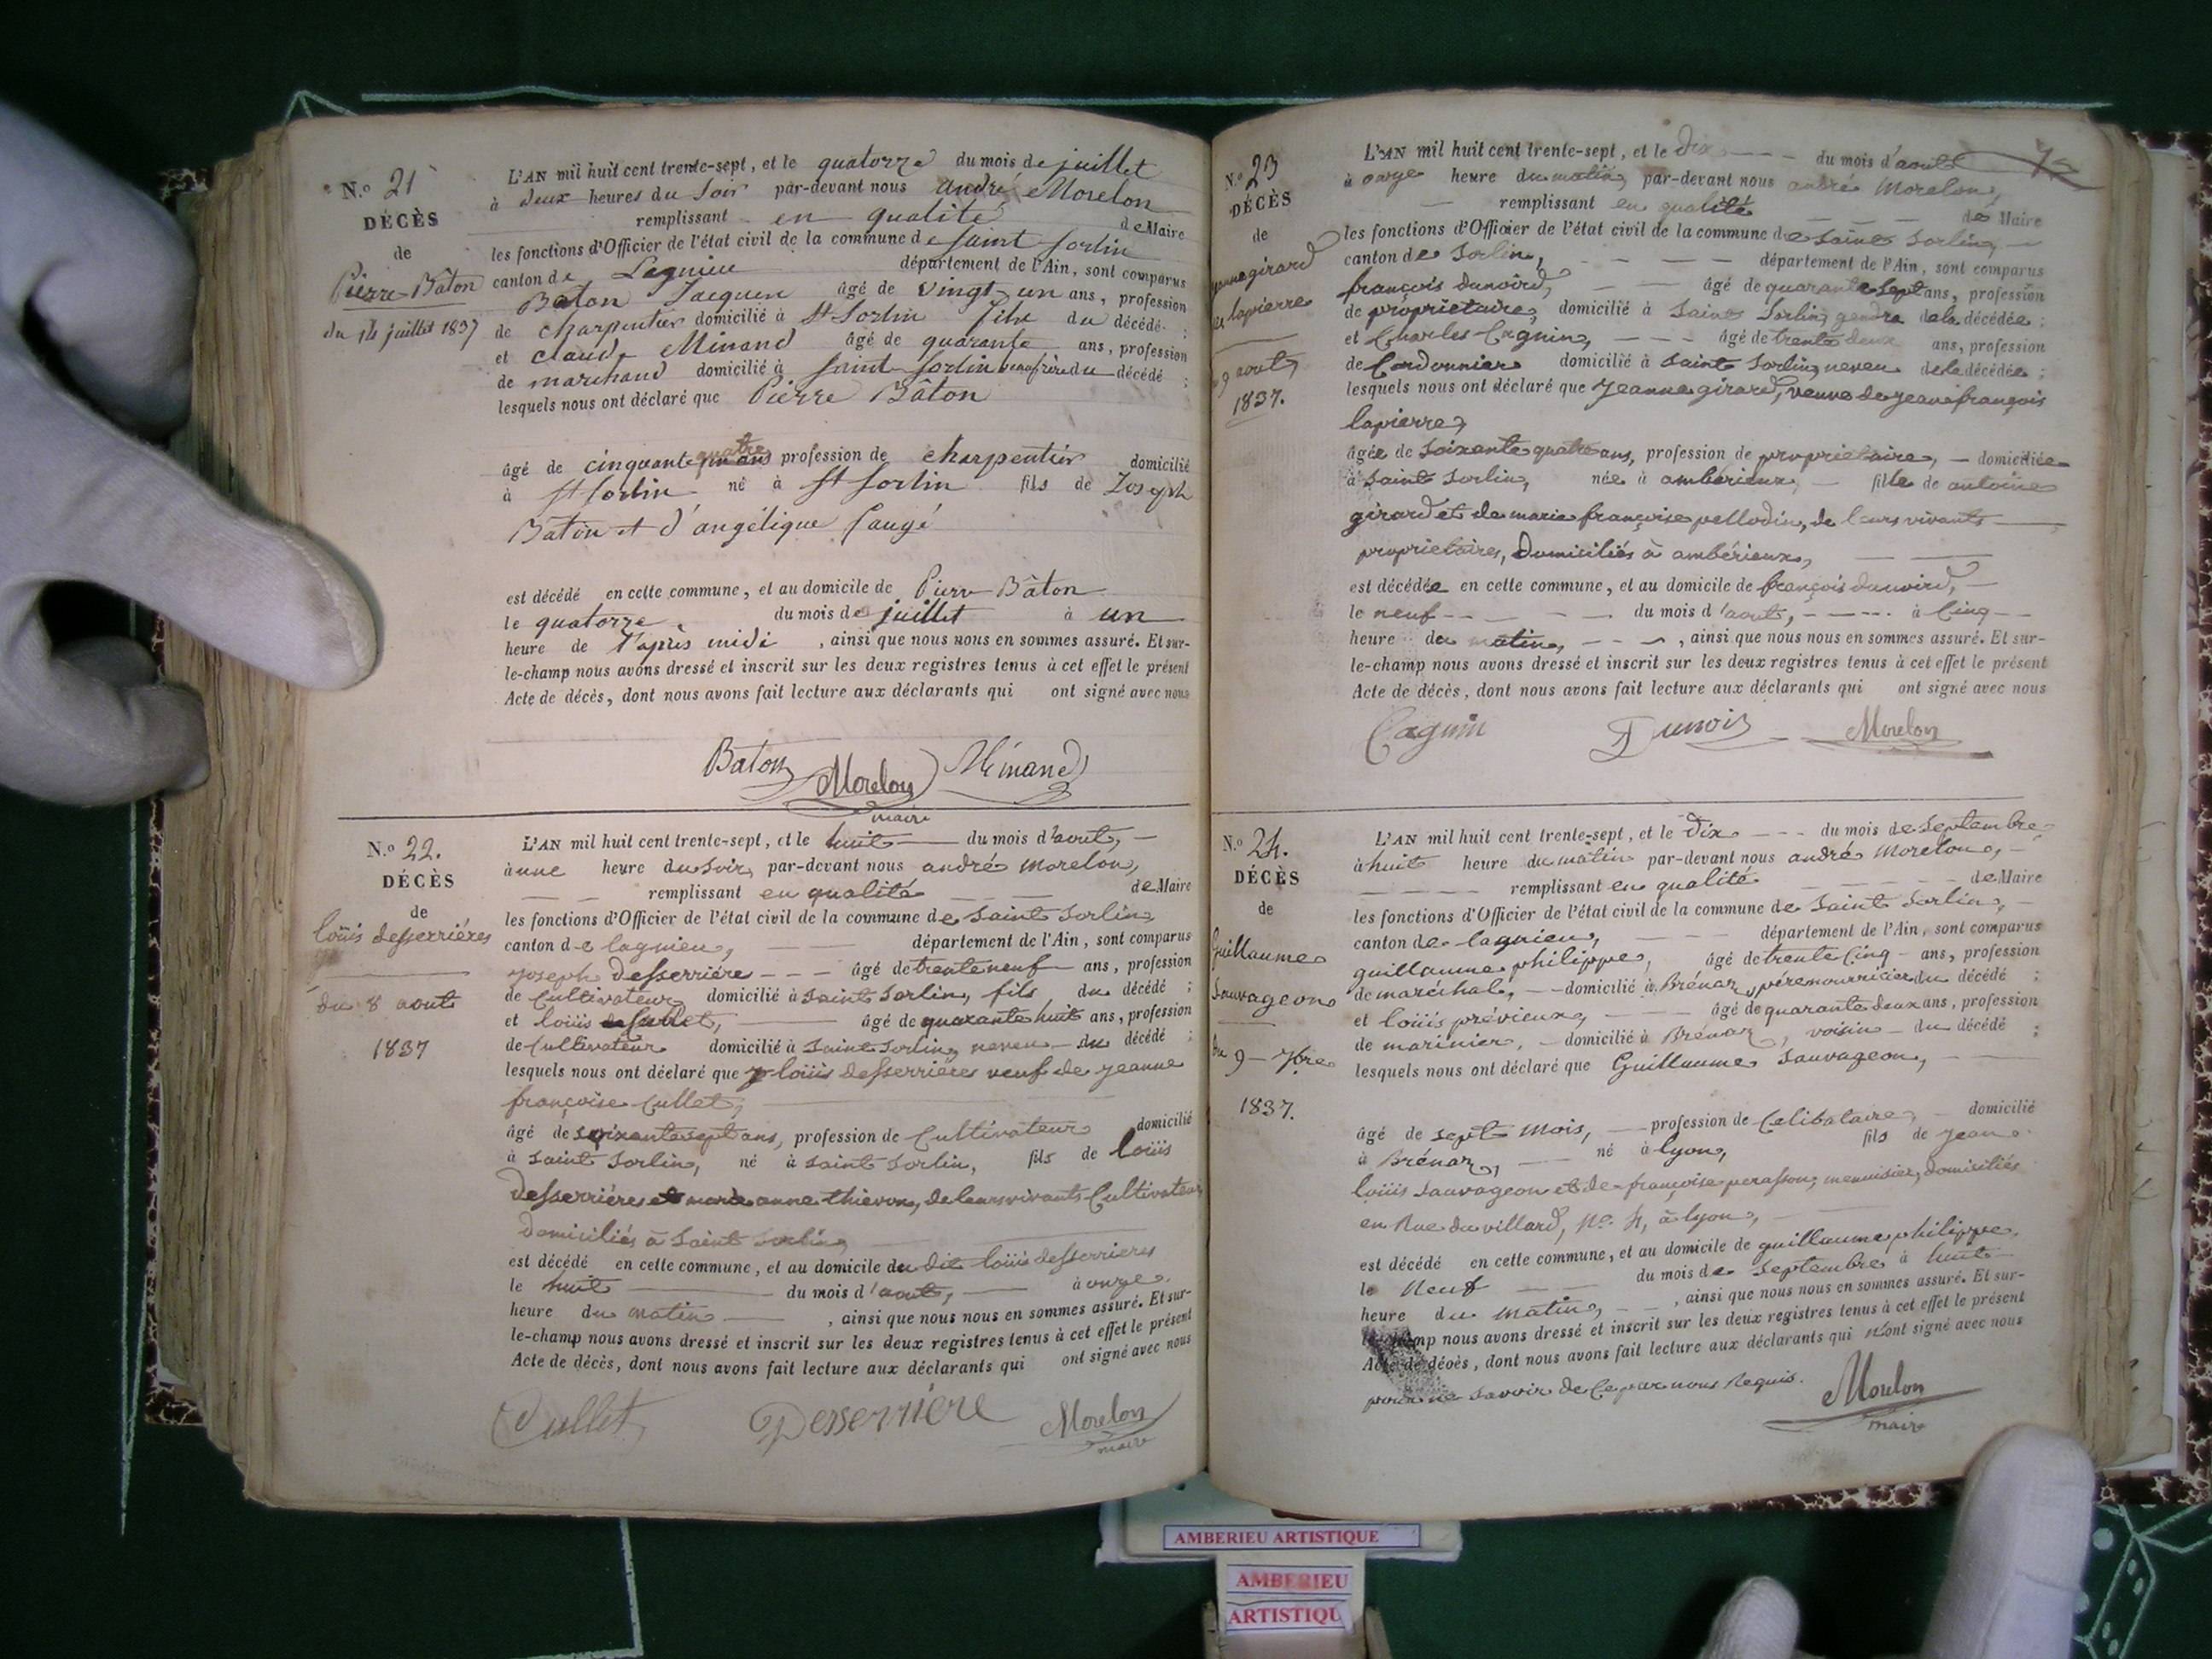 N.º 21
DÉCÈS
de
Pierre Bâton
du 14 juillet 1837
L'AN mil huit cent trente-sept, et le quatorze du mois de juillet
à deux heures du soir par-devant nous André Morelon
remplissant en qualité de Maire
les fonctions d'Officier de l'état civil de la commune de saint Sorlin
canton de Lagnieu département de l'Ain, sont comparus
Baton Jacques âgé de vingt un ans, profession
de charpentier domicilié à St Sorlin fils du décédé ;
et claude Minand âgé de quarante ans, profession
de marchand domicilié à saint Sorlin beaufrère du décédé ;
lesquels nous ont déclaré que Pierre Bâton
âgé de cinquante quatre ans profession de charpentier domicilié
à St Sorlin né à St Sorlin fils de Joseph
Bâton et d'angélique
est décédé en cette commune, et au domicile de Pierre Bâton
le quatorze du mois de juillet à un
heure de l'après midi, ainsi que nous nous en sommes assuré. Et sur-
le-champ nous avons dressé et inscrit sur les deux registres tenus à cet effet le présent
Acte de décès, dont nous avons fait lecture aux déclarants qui ont signé avec nous
Baton Morelon Minand
maire
N.º 22.
DÉCÈS
de
loüis desserriéres
du 8 aout
1837
L'AN mil huit cent trente-sept, et le huit du mois d'aout,
à une heure du soir, par-devant nous andré morelon,
remplissant en qualité de Maire
les fonctions d'Officier de l'état civil de la commune de saint Sorlin,
canton de lagnieu, département de l'Ain, sont comparus
joseph desserriére âgé de trente neuf ans, profession
de cultivateur domicilié à saint Sorlin, fils du décédé ;
et loüis Cullet, âgé de quarante huit ans, profession
de cultivateur domicilié à saint Sorlin, neveu du décédé ;
lesquels nous ont déclaré que loüis desserriéres veuf de jeanne
françoise Cullet,
âgé de soixante sept ans, profession de Cultivateur domicilié
à saint Sorlin, né à saint Sorlin, fils de loüis
desserriéres et marie anne thievon, de leurs vivants Cultivateurs
domiciliés à saint Sorlin,
est décédé en cette commune, et au domicile du dit loüis desserrieres
le huit du mois d'aout, à onze
heure du matin, ainsi que nous nous en sommes assuré. Et sur-
le-champ nous avons dressé et inscrit sur les deux registres tenus à cet effet le présent
Acte de décès, dont nous avons fait lecture aux déclarants qui ont signé avec nous
Cullet Desserriére Morelon
maire
N.º 23
DÉCÈS
de
jeanne girard
lapierre
9 aout
1837.
L'AN mil huit cent trente-sept, et le dix du mois d'aout
à onze heure du matin, par-devant nous andré Morelon,
remplissant en qualité de Maire
les fonctions d'Officier de l'état civil de la commune de saint Sorlin,
canton de Sorlin, département de l'Ain, sont comparus
françois dunoird, âgé de quarante sept ans, profession
de propriétaire, domicilié à saint Sorlin, gendre de la décédée ;
et Charles Cagnin, âgé de trente deux ans, profession
de Cordonnier domicilié à saint Sorlin, neveu de la décédée ;
lesquels nous ont déclaré que Jeanne girard, veuve de jean françois
lapierre,
âgée de soixante quatre ans, profession de propriétaire, domiciliée
à saint Sorlin, née à ambérieux, fille de antoine
girard et de marie françoise pellodin, de leurs vivants
proprietaires, domiciliés à ambérieux,
est décédée en cette commune, et au domicile de françois dunoird,
le neuf du mois d'aout, à Cinq
heure du matin, ainsi que nous nous en sommes assuré. Et sur-
le-champ nous avons dressé et inscrit sur les deux registres tenus à cet effet le présent
Acte de décès, dont nous avons fait lecture aux déclarants qui ont signé avec nous
Cagnin Dunoir Morelon
N.º 24.
DÉCÈS
de
Guillaume
Sauvageon
du 9 7bre
1837.
L'AN mil huit cent trente-sept, et le Dix du mois de Septembre
à huit heure du matin par-devant nous andré Morelon,
remplissant en qualité de Maire
les fonctions d'Officier de l'état civil de la commune de Saint Sorlin,
canton de lagnieu, département de l'Ain, sont comparus
guillaume philippe, âgé de trente Cinq ans, profession
de maréchal, domicilié à Brénaz, pére nourricier du décédé ;
et loüis prévieux, âgé de quarante deux ans, profession
de marinier, domicilié à Brénaz, voisin du décédé ;
lesquels nous ont déclaré que Guillaume Sauvageon,
âgé de sept mois, profession de Celibataire, domicilié
à Brénaz, né à lyon, fils de jean
loüis Sauvageon et de françoise perasson, menuisier, domiciliés
en Rue du villard, N.º 4, à lyon,
est décédé en cette commune, et au domicile de guillaume philippe.
le Neuf du mois de Septembre à huit
heure du Matin, ainsi que nous nous en sommes assuré. Et sur-
le-champ nous avons dressé et inscrit sur les deux registres tenus à cet effet le présent
Acte de décès, dont nous avons fait lecture aux déclarants qui n'ont signé avec nous
pour ne savoir de Ce par nous Requis.
Morelon
maire
AMBERIEU ARTISTIQUE
AMBERIEU
ARTISTIQU